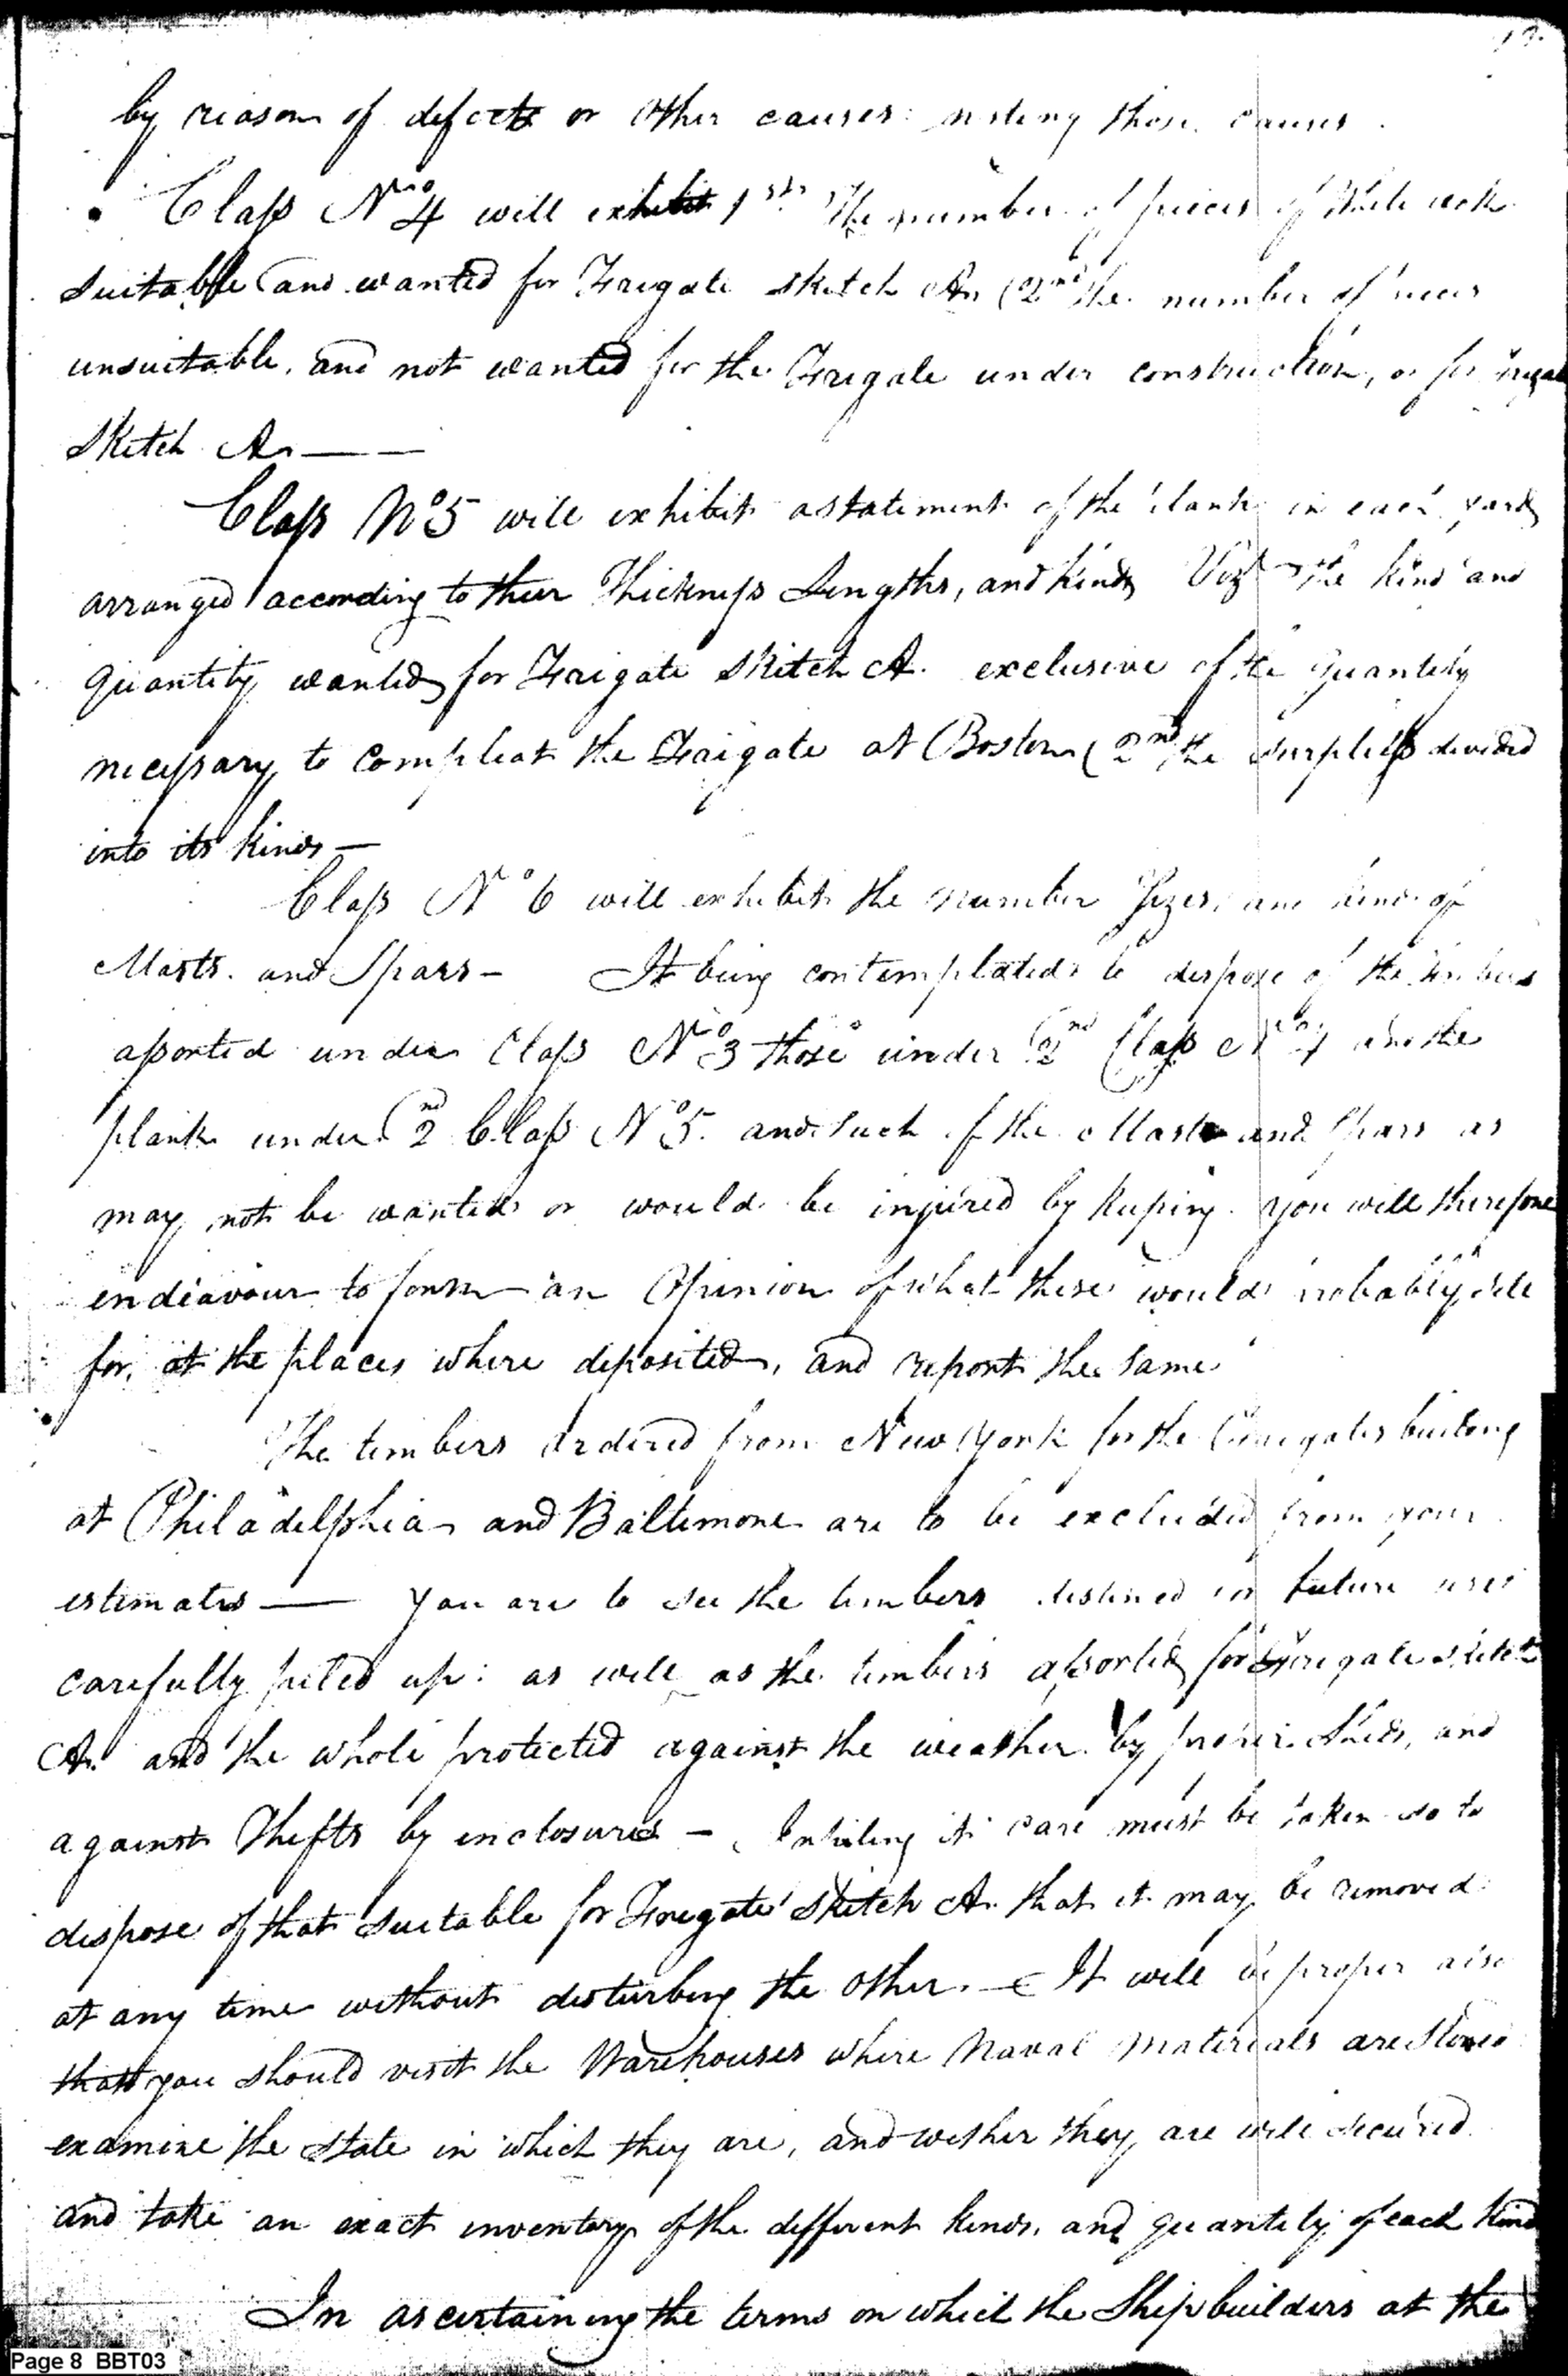 by reason of defects or other causes: noting those causes.
Class No 4 will exhibit 1st The number of pieces of White oak
suitable and wanted for Frigate sketch A. (2nd the number of pieces
unsuitable, and not wanted for the Frigate under construction, or for Frigate
Sketch A. ——
Class No 5 will exhibit a statement of the plank in each yard
arranged according to their Thickness Lengths, and kinds Vizt The kind and
quantity wanted for Frigate Sketch A. exclusive of the quantity
necessary to compleat the Frigate at Boston (2nd the surpluss divided
into its kinds —
Class No 6 will exhibit the number Sizes, and kinds of
Masts. and Spars — It being contemplated to dispose of the timbers
assorted under Class No 3 those under 2nd Class No 4 and the
plank under 2nd Class No 5. and such of the Masts and Spars as
may not be wanted or would be injured by keeping. you will therefore
endeavour to form an Opinion of what these would probably sell
for, at the places where deposited, and report the same
The timbers ordered from New York for the Frigates building
at Philadelphia and Baltimore are to be excluded from your
estimates — you are to see the timbers destined for future uses
carefully piled up: as well as the timbers assorted for Frigate sketch
A. and the whole protected against the weather by proper Sheds, and
against Thefts by enclosures — In piling it care must be taken so to
dispose of that suitable for Fregate Sketch A. that it may be removed
at any time without disturbing the other. — It will be proper also
that you should visit the Warehouses where Naval Materials are Stored
examine the state in which they are, and wether they are well secured
and take an exact inventory of the different kinds, and quantity of each kind
In ascertaining the terms on which the Shipbuilders at the
Page 8 BBT03